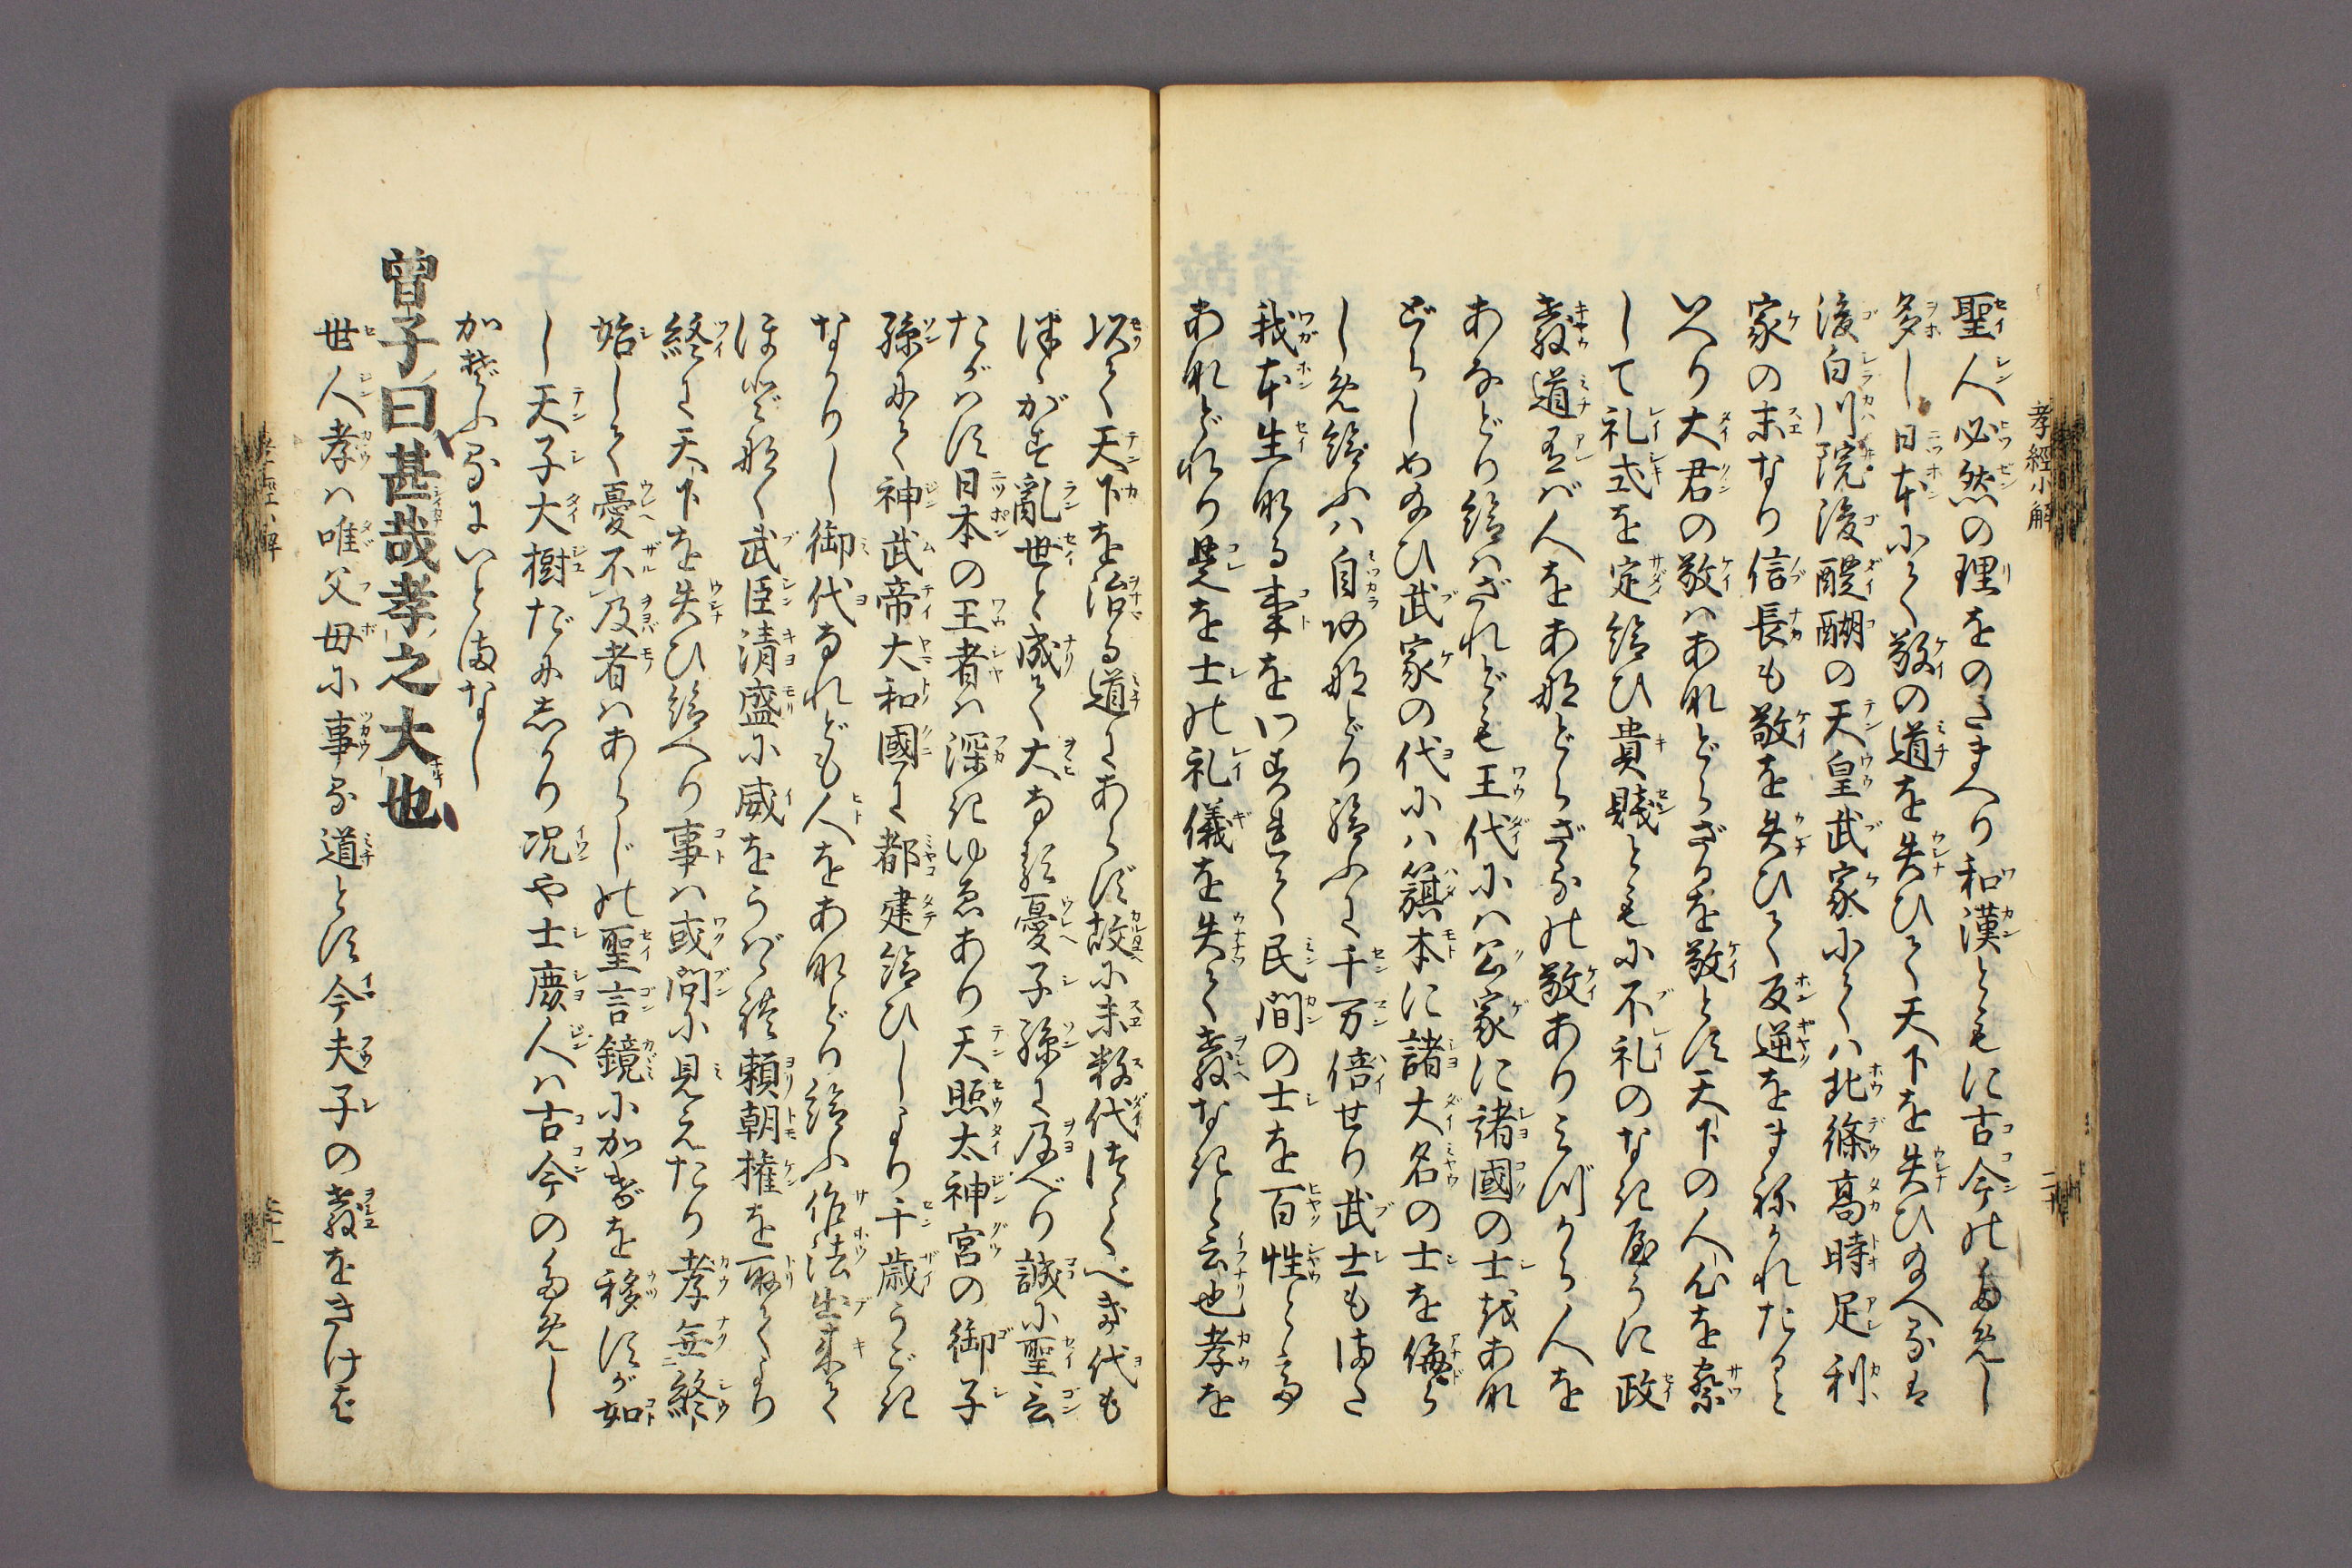 孝經小解
聖人必然の理をのたまへり和漢ともに古今のためし
多し日本にて敬の道を失ひて天下を失ひ給へるは
後白川院後醍醐の天皇武家にては北條高時足利
家の末なり信長も敬を失ひて反逆をまねかれたると
いへり大君の敬はあなどらざるを敬とす天下の人心を察
して礼式を定給ひ貴賤ともに不礼のなきやうに政
教道あれば人をあなどらざるの敬ありみづから人を
あなどり給はざれども王代には公家に諸國の士をあな
どらしめ給ひ武家の代には籏本に諸大名の士を侮ら
しめ給ふは自あなどり給ふに千万倍せり武士もまた
我本生なる事をいはずして民間の士を百性とて
あなどれり是を士の礼儀を失て教なきと云也孝を
以て天下を治る道にあらず故に末数代つゞくべき代も
つゞかず亂世と成て大なる憂子孫に及べり誠に聖言
たがはず日本の王者は深きゆゑあり天照太神宮の御子
孫にて神武帝大和國に都建給ひしより千歳うごき
なかりし御代なれども人をあなどり給ふ作法出来て
ほどなく武臣清盛に威をうばゝれ頼朝権を取てより
終に天下を失ひ給へり事は或問に見えたり孝無終
始して憂不及者はあらじの聖言鏡にかげを移すが如
し天子大樹だにしかり况や士庶人は古今のためし
かぞふるにいとまなし
曾子曰甚哉孝之大也
世人孝は唯父母に事る道とす今夫子の教をきけば